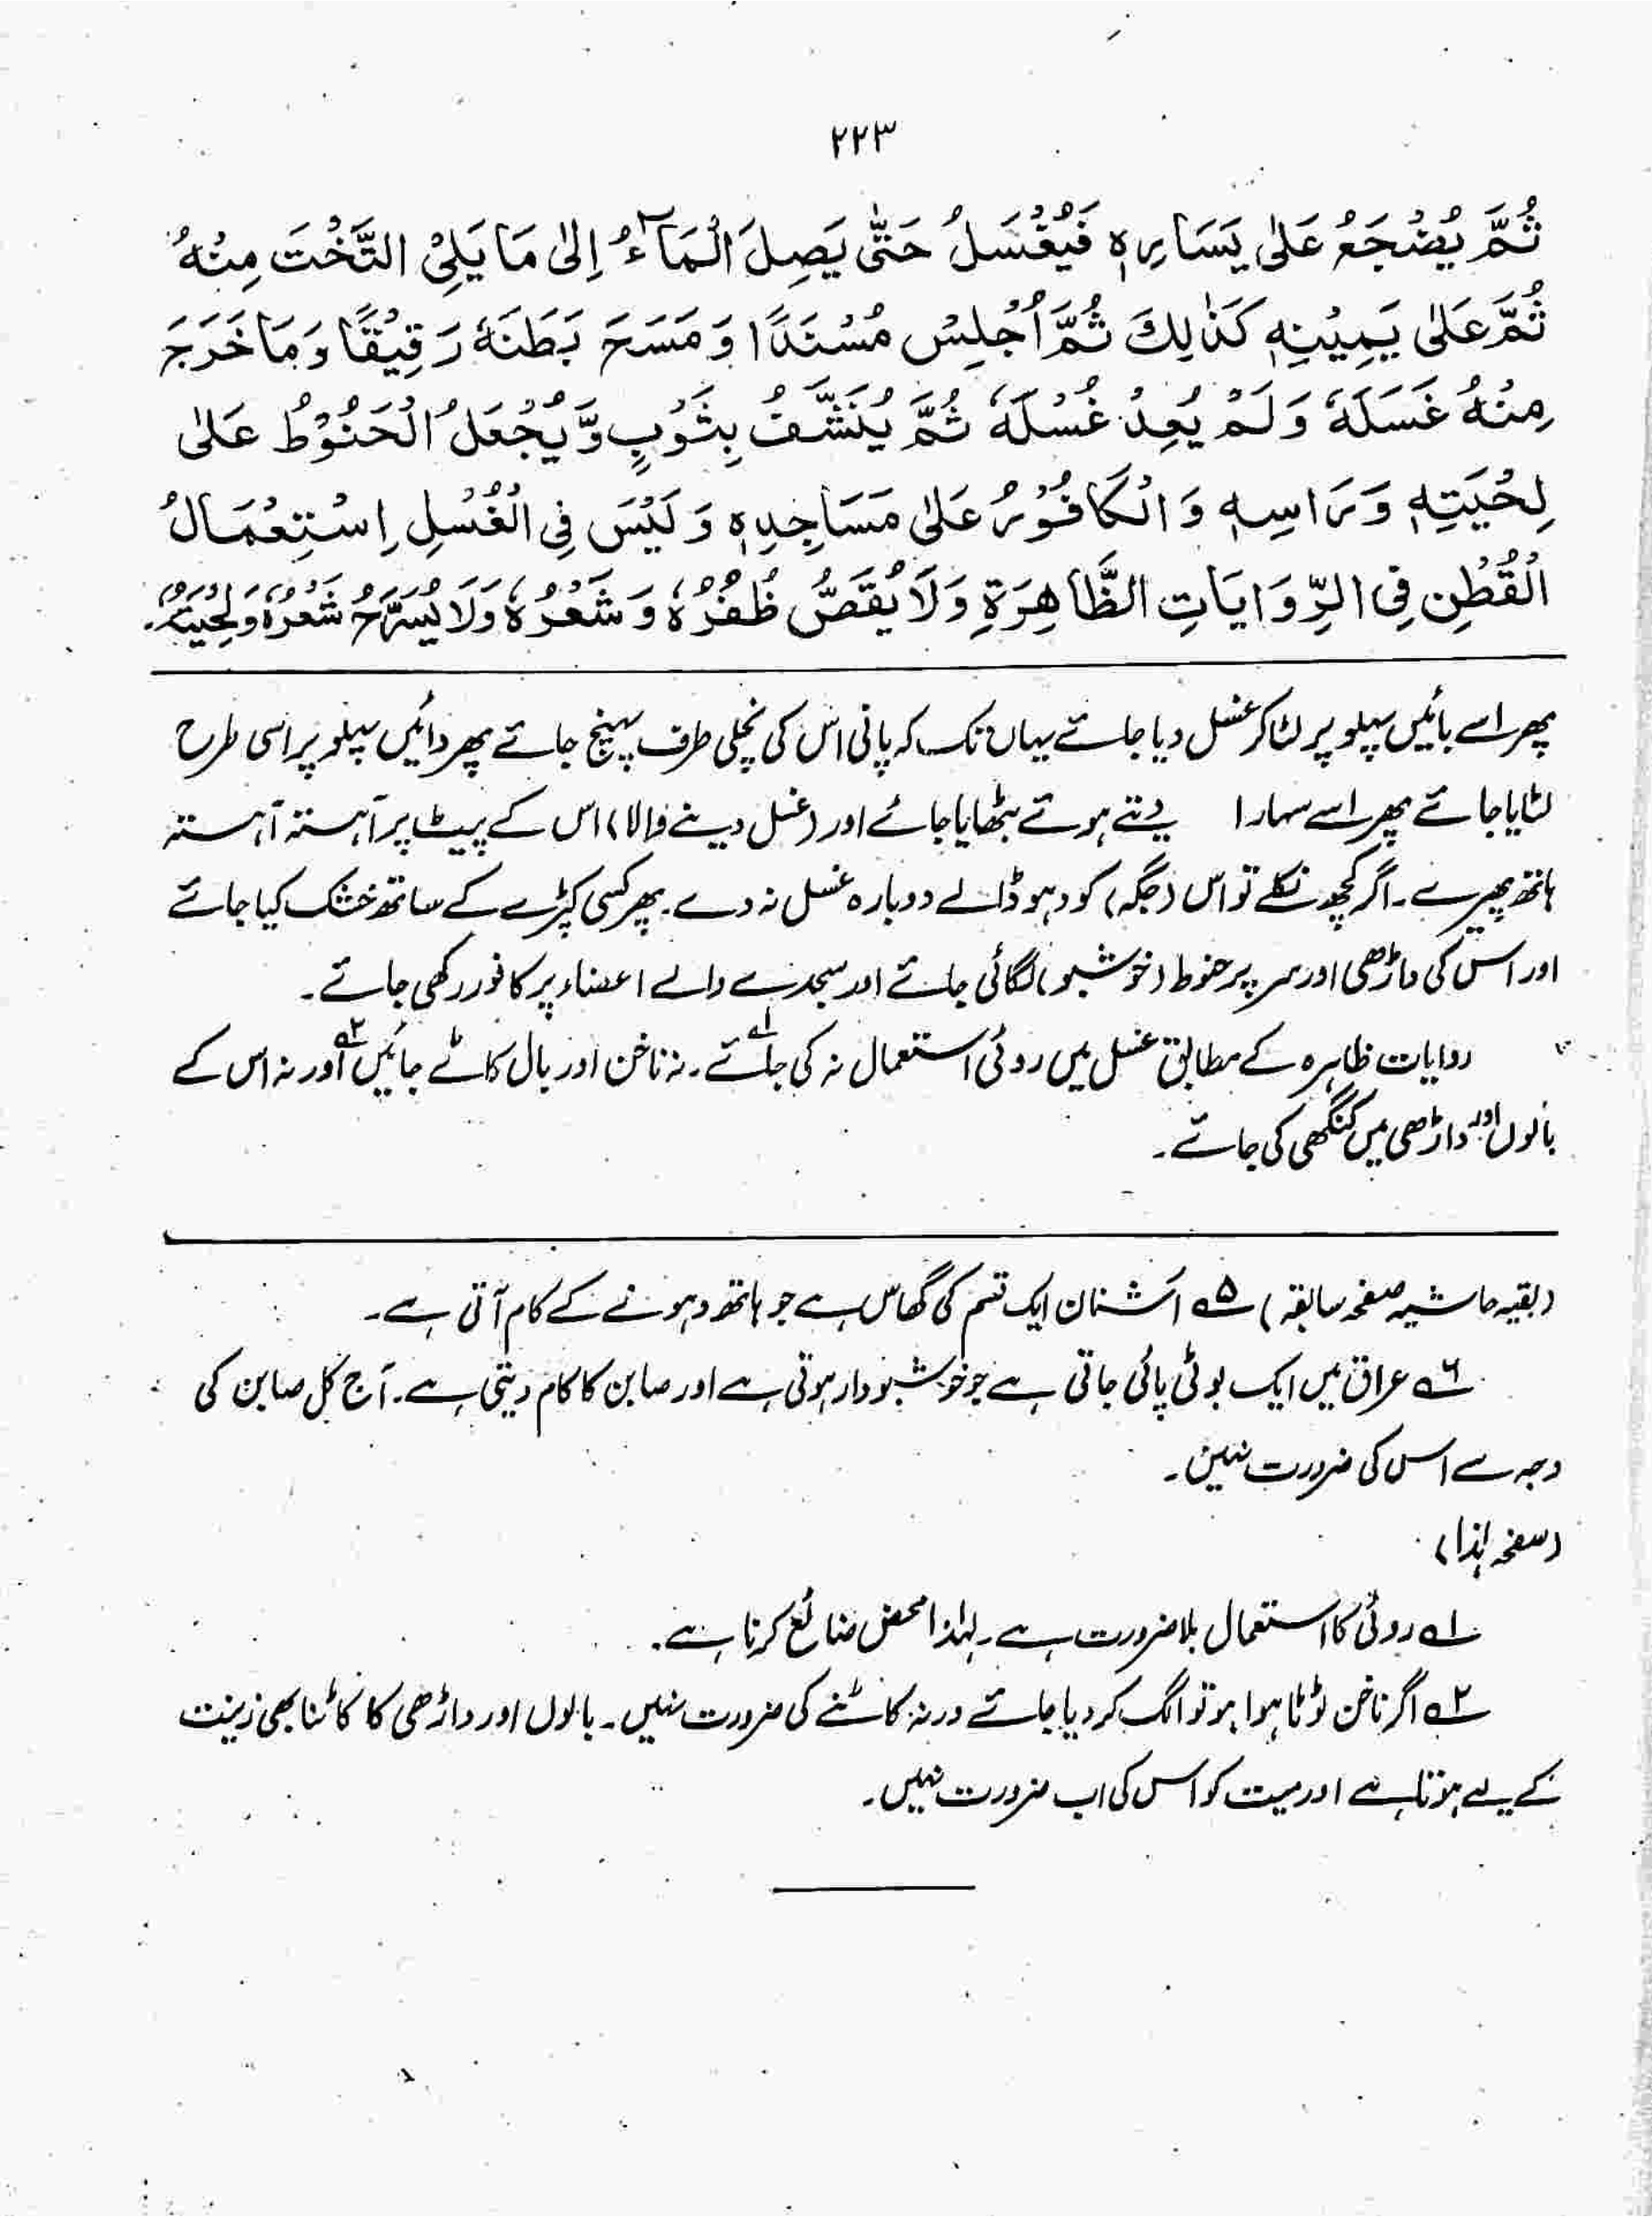 ۲۲۳
ثُمَّ يُضْجَعُ عَلٰى يَسَارِهٖ فَيُغْسَلُ حَتّٰى يَصِلَ الْمَآءُ اِلٰى مَا يَلِىْ التَّخْتَ مِنْهُ
ثُمَّ عَلٰى يَمِيْنِهٖ كَذٰلِكَ ثُمَّ اُجْلِسَ مُسْنَدًا وَمَسَحَ بَطَنَهٗ رَقِيْقًا وَمَا خَرَجَ
مِنْهُ غَسَلَهٗ وَلَمْ يُعِدْ غُسْلَهٗ ثُمَّ يُنَشَّفُ بِثَوْبٍ وَّيُجْعَلُ الْحَنُوْطُ عَلٰى
لِحْيَتِهٖ وَرَاسِهٖ وَالْكَافُوْرُ عَلٰى مَسَاجِدِهٖ وَلَيْسَ فِى الْغُسْلِ اِسْتِعْمَالُ
الْقُطْنِ فِى الرِّوَايَاتِ الظَّاهِرَةِ وَلَا يُقَصُّ ظُفُرُهٗ وَشَعْرُهٗ وَلَا يُسَرَّحُ شَعْرُهٗ وَلِحْيَتُهٗ.
پھر اسے بائیں پہلو پر لٹا کر غسل دیا جائے یہاں تک کہ پانی اس کی نچلی طرف پہنچ جائے پھر دائیں پہلو پر اسی طرح
لٹایا جائے پھر اسے سہارا دیتے ہوئے بٹھایا جائے اور (غسل دینے والا) اس کے پیٹ پر آہستہ آہستہ
ہاتھ پھیرے۔ اگر کچھ نکلے تو اس (جگہ) کو دہو ڈالے دوبارہ غسل نہ دے۔ پھر کسی کپڑے کے ساتھ خشک کیا جائے
اور اس کی داڑھی اور سر پر حنوط (خوشبو) لگائی جائے اور سجدے والے اعضاء پر کافور رکھی جائے۔
روایات ظاہرہ کے مطابق غسل میں روئی استعمال نہ کی جائے۱؎۔ نہ ناخن اور بال کاٹے جائیں۲؎ اور نہ اس کے
بالوں اور داڑھی میں کنگھی کی جائے۔
(بقیہ حاشیہ صفحہ سابقہ) ۵؎ اُشنان ایک قسم کی گھاس ہے جو ہاتھ دہونے کے کام آتی ہے۔
۶؎ عراق میں ایک بوٹی پائی جاتی ہے جو خوشبودار ہوتی ہے اور صابن کا کام دیتی ہے۔ آج کل صابن کی
وجہ سے اس کی ضرورت نہیں۔
(صفحہ ہٰذا)
۱؎ روئی کا استعمال بلاضرورت ہے۔ لہٰذا محض ضائع کرنا ہے۔
۲؎ اگر ناخن ٹوٹا ہوا ہو تو الگ کر دیا جائے ورنہ کاٹنے کی ضرورت نہیں۔ بالوں اور داڑھی کا کاٹنا بھی زینت
کے لیے ہوتا ہے اور میت کو اس کی اب ضرورت نہیں۔